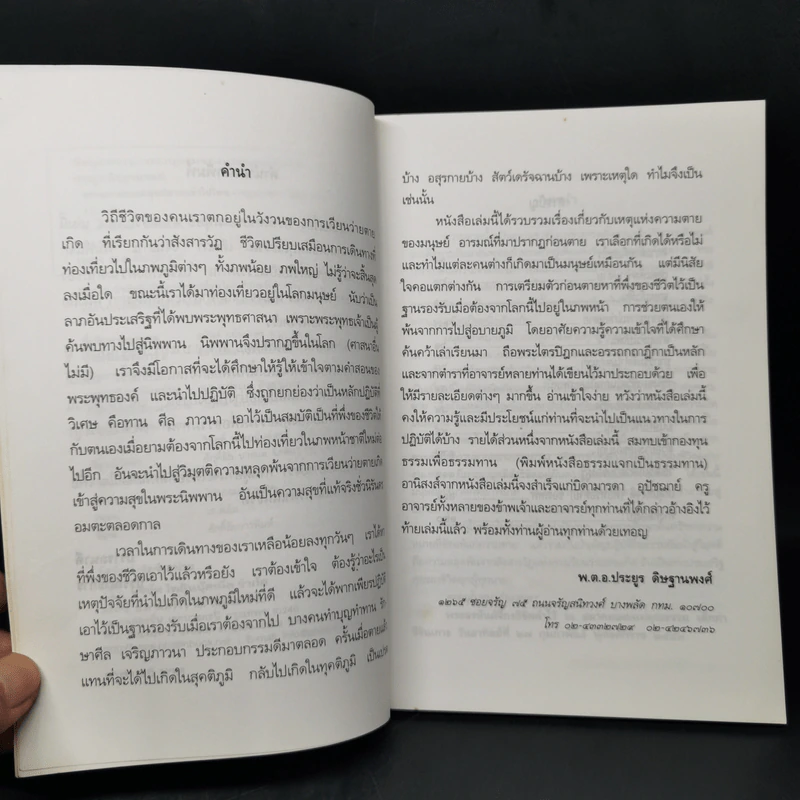 คำนำ
วิถีชีวิตของคนเราตกอยู่ในวังวนของการเวียนว่ายตาย
เกิด ที่เรียกกันว่าสังสารวัฏ ชีวิตเปรียบเสมือนการเดินทางที่
ท่องเที่ยวไปในภพภูมิต่างๆ ทั้งภพน้อย ภพใหญ่ ไม่รู้ว่าจะสิ้นสุด
ลงเมื่อใด ขณะนี้เราได้มาท่องเที่ยวอยู่ในโลกมนุษย์ นับว่าเป็น
ลาภอันประเสริฐที่ได้พบพระพุทธศาสนา เพราะพระพุทธเจ้าเป็นผู้
ค้นพบทางไปสู่นิพพาน นิพพานจึงปรากฏขึ้นในโลก (ศาสนาอื่น
ไม่มี) เราจึงมีโอกาสที่จะได้ศึกษาให้รู้ให้เข้าใจตามคำสอนของ
พระพุทธองค์ และนำไปปฏิบัติ ซึ่งถูกยกย่องว่าเป็นหลักปฏิบัติที่
วิเศษ คือทาน ศีล ภาวนา เอาไว้เป็นสมบัติเป็นที่พึ่งของชีวิตให้
กับตนเองเมื่อยามต้องจากโลกนี้ไปท่องเที่ยวในภพหน้าชาติใหม่ต่อ
ไปอีก อันจะนำไปสู่วิมุตติความหลุดพ้นจากการเวียนว่ายตายเกิด
เข้าสู่ความสุขในพระนิพพาน อันเป็นความสุขที่แท้จริงชั่วนิรันดร
อมตะตลอดกาล
เวลาในการเดินทางของเราเหลือน้อยลงทุกวันๆ เราได้หา
ที่พึ่งของชีวิตเอาไว้แล้วหรือยัง เราต้องเข้าใจ ต้องรู้ว่าอะไรเป็น
เหตุปัจจัยที่นำไปเกิดในภพภูมิใหม่ที่ดี แล้วจะได้พากเพียรปฏิบัติ
เอาไว้เป็นฐานรองรับเมื่อเราต้องจากไป บางคนทำบุญทำทาน รัก
ษาศีล เจริญภาวนา ประกอบกรรมดีมาตลอด ครั้นเมื่อตายแล้ว
แทนที่จะได้ไปเกิดในสุคติภูมิ กลับไปเกิดในทุคติภูมิ เป็นเปรต
บ้าง อสุรกายบ้าง สัตว์เดรัจฉานบ้าง เพราะเหตุใด ทำไมจึงเป็น
เช่นนั้น
หนังสือเล่มนี้ได้รวบรวมเรื่องเกี่ยวกับเหตุแห่งความตาย
ของมนุษย์ อารมณ์ที่มาปรากฏก่อนตาย เราเลือกที่เกิดได้หรือไม่
และทำไมแต่ละคนต่างก็เกิดมาเป็นมนุษย์เหมือนกัน แต่มีนิสัย
ใจคอแตกต่างกัน การเตรียมตัวก่อนตายหาที่พึ่งของชีวิตไว้เป็น
ฐานรองรับเมื่อต้องจากโลกนี้ไปอยู่ในภพหน้า การช่วยตนเองให้
พ้นจากการไปสู่อบายภูมิ โดยอาศัยความรู้ความเข้าใจที่ได้ศึกษา
ค้นคว้าเล่าเรียนมา ถือพระไตรปิฎกและอรรถกถาฎีกาเป็นหลัก
และจากตำราที่อาจารย์หลายท่านได้เขียนไว้มาประกอบด้วย เพื่อ
ให้มีรายละเอียดต่างๆ มากขึ้น อ่านเข้าใจง่าย หวังว่าหนังสือเล่มนี้
คงให้ความรู้และมีประโยชน์แก่ท่านที่จะนำไปเป็นแนวทางในการ
ปฏิบัติได้บ้าง รายได้ส่วนหนึ่งจากหนังสือเล่มนี้ สมทบเข้ากองทุน
ธรรมเพื่อธรรมทาน (พิมพ์หนังสือธรรมแจกเป็นธรรมทาน)
อานิสงส์จากหนังสือเล่มนี้จงสำเร็จแก่บิดามารดา อุปัชฌาย์ ครู
อาจารย์ทั้งหลายของข้าพเจ้าและอาจารย์ทุกท่านที่ได้กล่าวอ้างอิงไว้
ท้ายเล่มนี้แล้ว พร้อมทั้งท่านผู้อ่านทุกท่านด้วยเทอญ
พ.ต.อ.ประยูร ดิษฐานพงศ์
๑๒๖๕ ซอยจรัญ ๗๕ ถนนจรัญสนิทวงศ์ บางพลัด กทม. ๑๐๗๐๐
โทร ๐๒-๔๓๓๒๗๒๙ ๐๒-๔๒๔๖๗๓๖